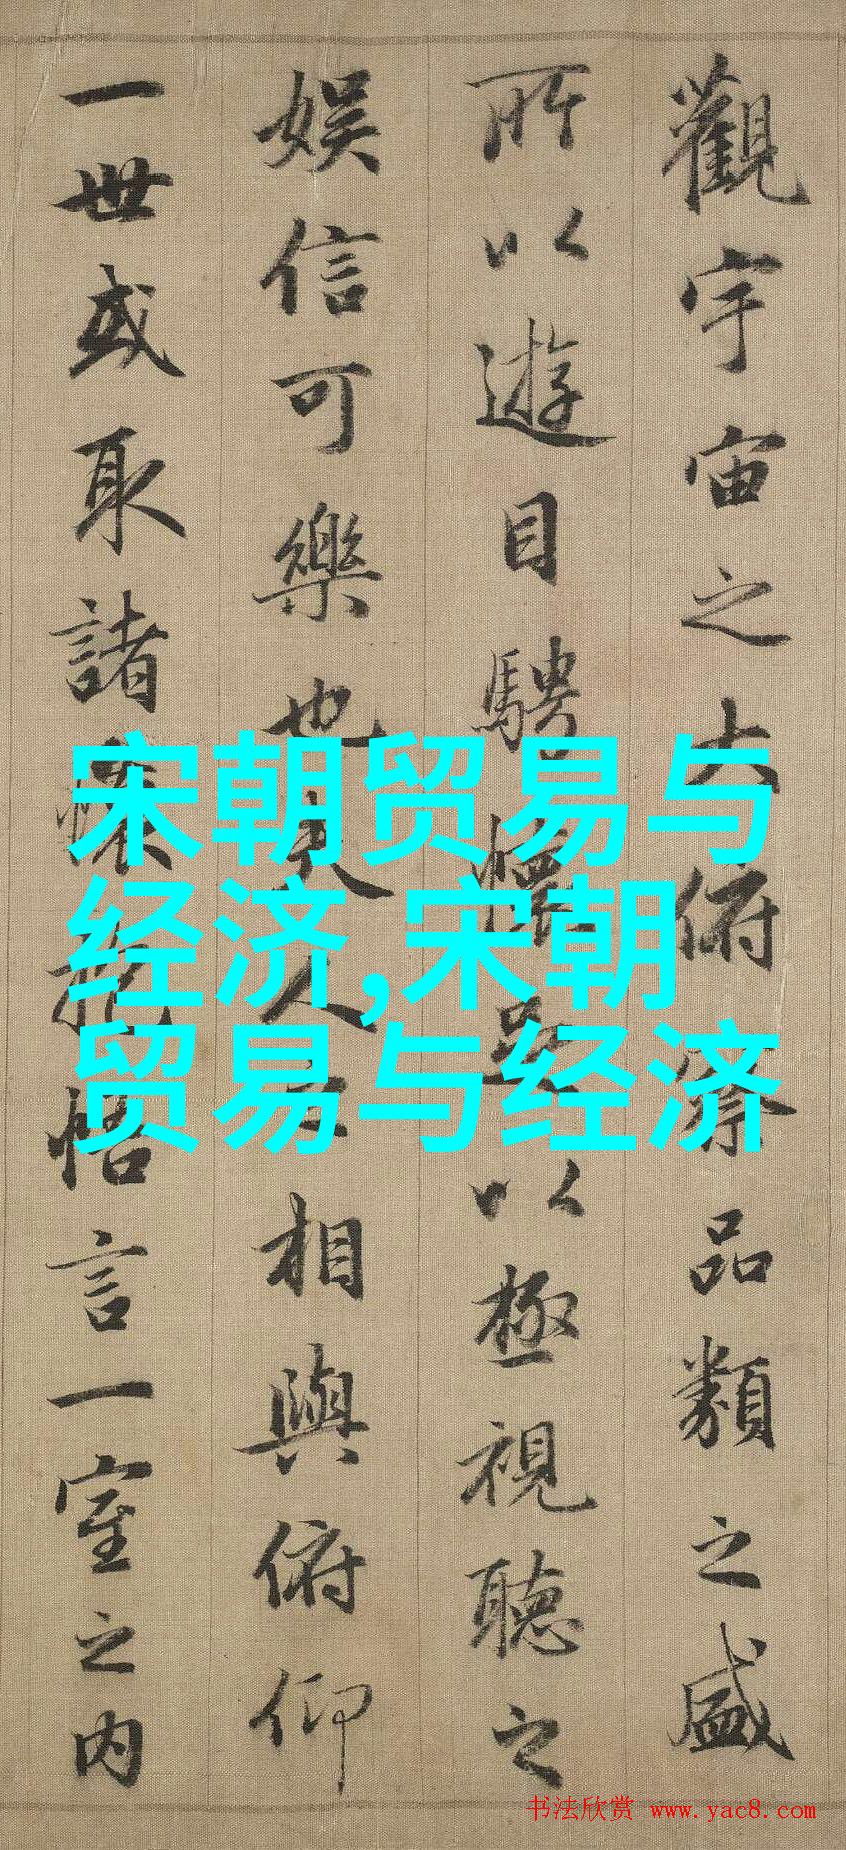 觀宇宙之大俯察品類之盛
所以遊目騁懷足以極視聽之
娛信可樂也夫人之相與俯仰
一世或取諸懷抱悟言一室之內
宋朝贸易与
经济,宋朝
贸易与经济
书法欣赏 www.yac8.com